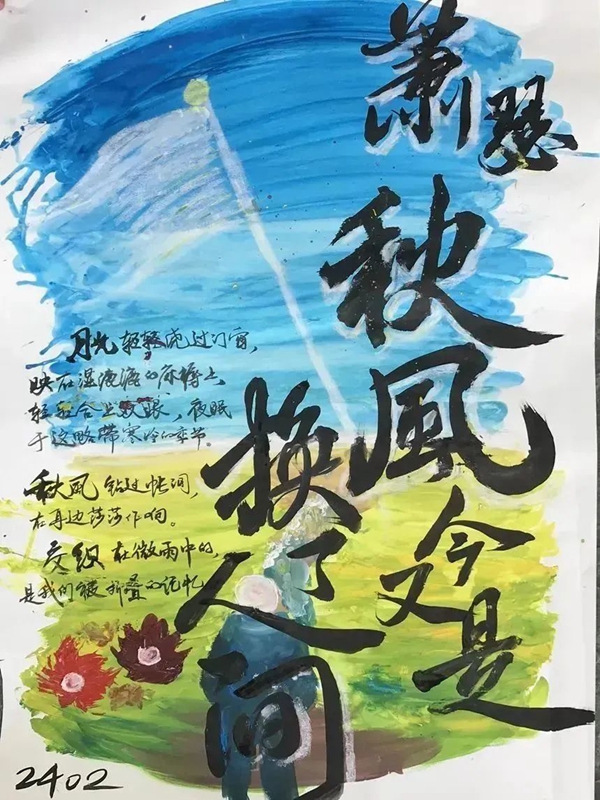 萧瑟
秋風
今又是
换了
人间
月光轻轻 过门窗，
映在湿漉漉的 上
轻轻合上双眼，夜眠
于这略带寒冷的季节。
秋风钻过帐间，
在耳边莎莎作响。
交织在微雨中的，
是我们被折叠的记忆
2402